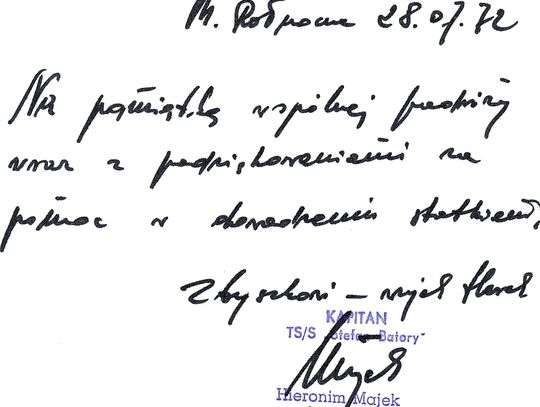 M. Północne 28.07.72
Na pamiątkę wspólnej podróży
wraz z podziękowaniami za
pomoc w dowodzeniu statkiem.
Zbyszkowi –
KAPITAN
TS/S „Stefan Batory”
Hieronim Majek